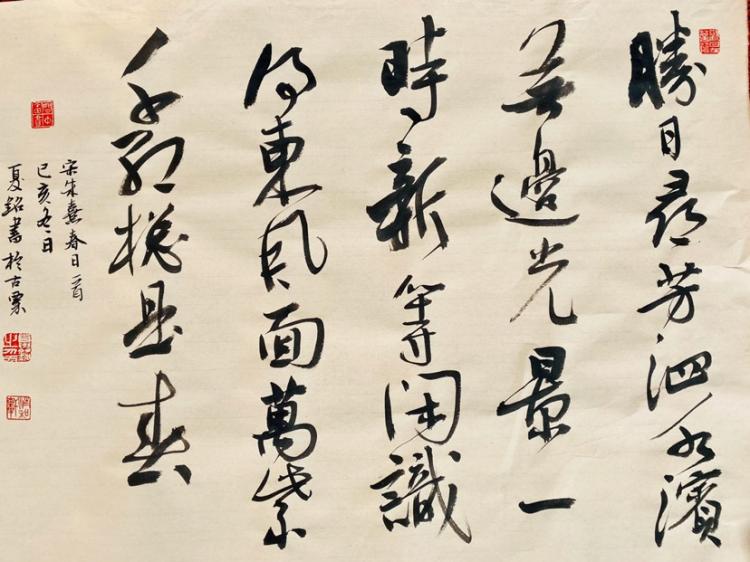 勝日尋芳泗水濱
無邊光景一
時新等閑識
得東風面萬紫
千紅總是春
宋朱熹春日一首
己亥冬日
夏銘書於古粟